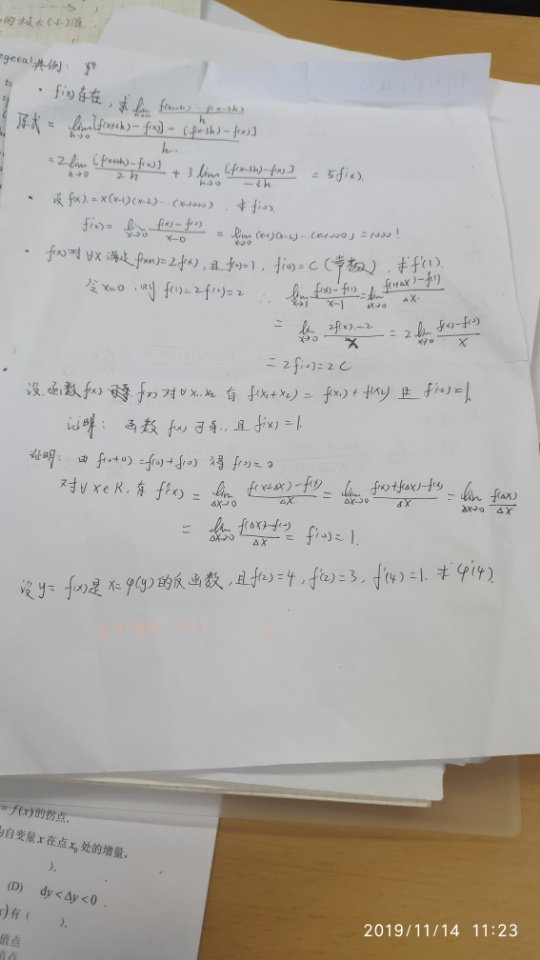 典例:
· f'(x)存在, 求 lim h→0 f(x+2h) − f(x−3h) / h
原式 = lim h→0 [f(x+2h) − f(x)] − [f(x−3h) − f(x)] / h
= 2 lim h→0 [f(x+2h) − f(x)] / 2h + 3 lim h→0 [f(x−3h) − f(x)] / −3h = 5f'(x).
· 设 f(x) = x(x−1)(x−2)…(x−1000), 求 f'(0).
f'(0) = lim x→0 f(x) − f(0) / x−0 = lim x→0 (x−1)(x−2)…(x−1000) = 1000!
· f(x)对∀x 满足 f(x+1) = 2f(x), 且 f(0)=1, f'(0) = C (常数). 求 f'(1).
令 x=0, 则 f(1) = 2f(0) = 2 ∴ lim x→1 f(x) − f(1) / x−1 = lim Δx→0 f(1+Δx) − f(1) / Δx
= lim x→0 2f(x) − 2 / x = 2 lim x→0 f(x) − f(0) / x
= 2f'(0) = 2C
设函数 f(x) f(x) 对∀x₁, x₂ 有 f(x₁+x₂) = f(x₁) + f(x₂) 且 f'(0) = 1.
证明: 函数 f(x) 可导, 且 f'(x) = 1.
证明: 由 f(0+0) = f(0) + f(0) 得 f(0) = 0
对∀x∈R, 有 f'(x) = lim Δx→0 f(x+Δx) − f(x) / Δx = lim Δx→0 f(x) + f(Δx) − f(x) / Δx = lim Δx→0 f(Δx) / Δx
= lim Δx→0 f(Δx) − f(0) / Δx = f'(0) = 1.
设 y = f(x) 是 x = φ(y) 的反函数, 且 f(2) = 4, f'(2) = 3, f'(4) = 1. 求 φ'(4).
= f(x)的拐点.
自变量 x 在点 x₀ 处的增量,
).
(D) dy < Δy < 0 .
)有 ( ).
值点
值点
2019/11/14 11:23